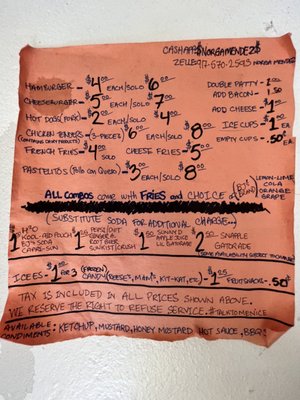 CASHAPP$NORGAMENDEZ$
ZELLE 917-570-2593 NORGA MENDEZ
HAMBURGER - $4.00 EACH/SOLO $6.00 DOUBLE PATTY - 1.00
CHEESEBURGER - $5.00 EACH/SOLO $7.00 ADD BACON - 1.50
HOT DOGS (PORK) - $2.00 EACH/SOLO $4.00 ADD CHEESE - $1.00
CHICKEN TENDERS - (3-PIECES) $6.00 EACH/SOLO $8.00 ICE CUPS - $1.00 EA
(CONTAINS DAIRY PRODUCTS) EMPTY CUPS - .50¢ EA
FRENCH FRIES - $4.00 SOLO CHEESE FRIES $5.00
PASTELITOS (Pollo con Queso) - $3.00 EACH/SOLO $8.00
ALL COMBOS come with FRIES and CHOICE of
LEMON-LIME
COLA
ORANGE
GRAPE
(SUBSTITUTE SODA FOR ADDITIONAL CHARGE...)
$1.00 H2O
KOOL-AID POUCH
BJ'S SODA
CAPRI-SUN
$1.25 PEPSI/DIET
GINGER A.
ROOT BEER
SUNKIST/CRUSH
$1.50 SUNNY D
APPLE JUICE
LIL GATORADE
$2.50 SNAPPLE
GATORADE
(SOME AVAILABILITY SUBJECT TO CHANGE)
ICEES - $1.00 or 2 (FROZEN) CANDY (REESE'S, M&M'S, KIT-KAT, ETC) - $1.25 FRUIT SNACKS - .50¢
TAX IS INCLUDED IN ALL PRICES SHOWN ABOVE.
WE RESERVE THE RIGHT TO REFUSE SERVICE. #TALKTOMENICE
AVAILABLE CONDIMENTS: KETCHUP, MUSTARD, HONEY MUSTARD HOT SAUCE, BBQ